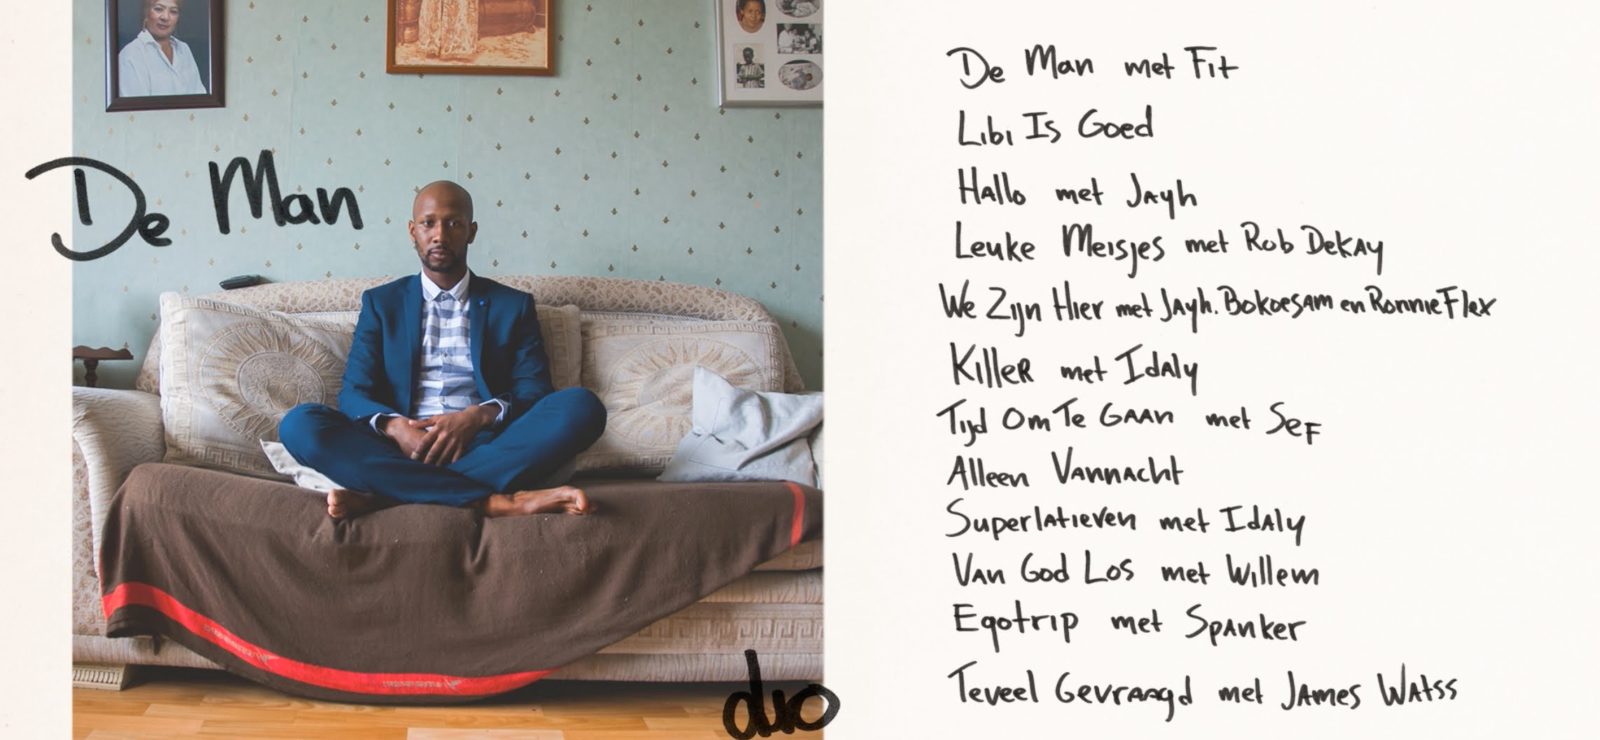 De Man
dio
De Man met Fit
Libi Is Goed
Hallo met Jayh
Leuke Meisjes met Rob Dekay
We Zijn Hier met Jayh. Bokoesam en Ronnie Flex
Killer met Idaly
Tijd Om Te Gaan met Sef
Alleen Vannacht
Superlatieven met Idaly
Van God Los met Willem
Egotrip met Spanker
Teveel Gevraagd met James Watss